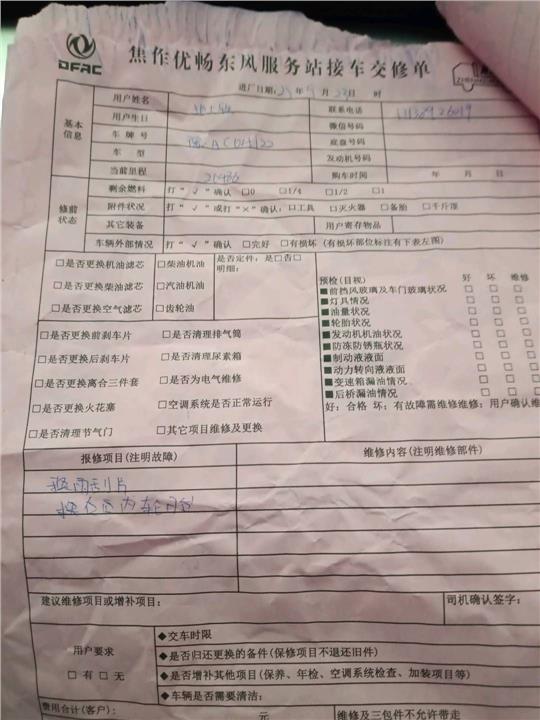 DFAC
焦作优畅东风服务站接车交修单
进厂日期: 年 月 23日 时
基本信息
用户姓名
联系电话
用户生日
微信号码
车牌号
底盘号码
车型
发动机号码
当前里程
购车时间 年 月 日
修前状态
剩余燃料 打“√”确认 □0 □1/4 □1/2 □1
附件状况 打“√”或打“×”确认:□工具 □灭火器 □备胎 □千斤顶
其它装备 用户寄存物品
车辆外部情况 打“√”确认 □完好 □有损坏(有损坏部位标注有下表左图)
□是否更换机油滤芯 □柴油机油
□是否更换柴油滤芯 □汽油机油
□是否更换空气滤芯 □齿轮油
是否定件: 是□否□
明细:
□是否更换前刹车片 □是否清理排气筒
□是否更换后刹车片 □是否清理尿素箱
□是否更换离合三件套 □是否为电气维修
□是否更换火花塞 □空调系统是否正常运行
□是否清理节气门 □其它项目维修及更换
预检(目视) 好 坏 维修
■前挡风玻璃及车门玻璃状况 □ □ □
■灯具情况 □ □ □
■油量状况 □ □ □
■轮胎状况 □ □ □
■发动机机油状况 □ □ □
■防冻防锈瓶状况 □ □ □
■制动液液面 □ □ □
■动力转向液液面 □ □ □
■变速箱漏油情况 □ □ □
■后桥漏油情况 □ □ □
好:合格 坏:有故障需维修维修:用户确认维
报修项目(注明故障) 维修内容(注明维修部件)
换雨刮片
建议维修项目或增补项目: 司机确认签字:
用户要求
□有□无
◆交车时限
◆是否归还更换的备件(保修项目不退还旧件)
◆是否增补其他项目(保养、年检、空调系统检查、加装项目等)
◆车辆是否需要清洁:
费用合计(客户): 元 维修及三包件不允许带走